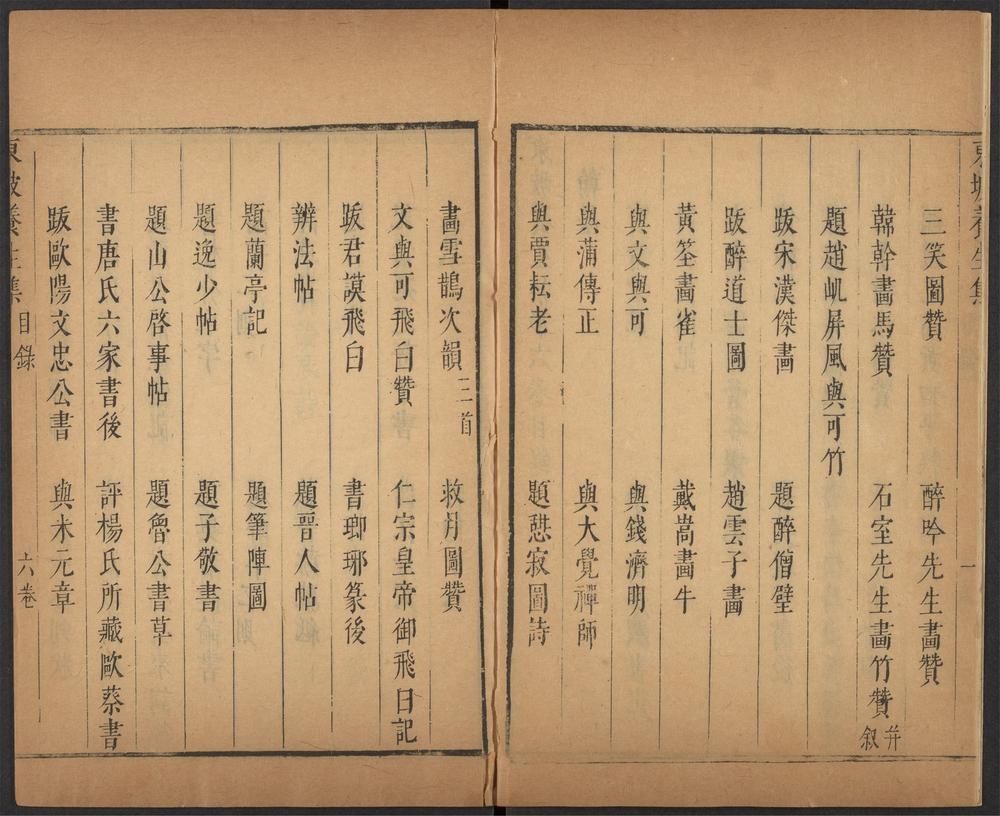 東坡養生集
一
三笑圖贊
醉吟先生畵贊
韓幹畵馬贊
石室先生畵竹贊 并叙
題趙㞦屏風與可竹
跋宋漢傑畵
題醉僧壁
跋醉道士圖
趙雲子畵
黃筌畵雀
戴嵩畵牛
與文與可
與錢濟明
與蒲傳正
與大覺禪師
與賈耘老
題憇寂圖詩
畵雪鵲次韻 三首
救月圖贊
文與可飛白贊
仁宗皇帝御飛白記
跋君謨飛白
書瑯琊篆後
辨法帖
題晉人帖
題蘭亭記
題筆陣圖
題逸少帖
題子敬書
題山公啓事帖
題魯公書草
書唐氏六家書後
評楊氏所藏歐蔡書
跋歐陽文忠公書
與米元章
東坡養生集
目錄
六卷